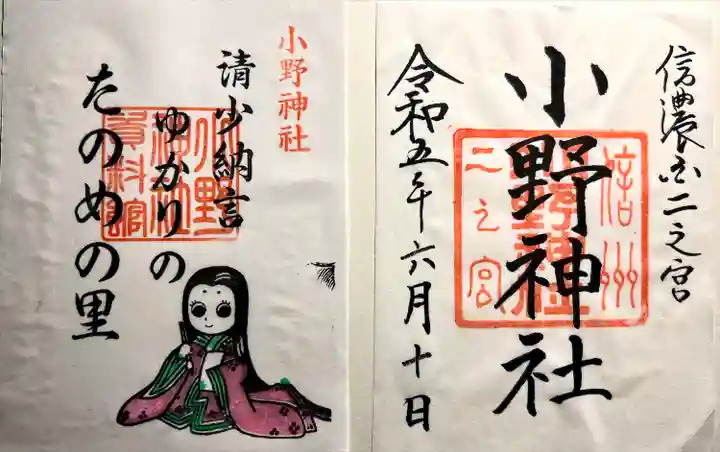 信濃国二之宮
小野神社
令和五年六月十日
信州
小野神社
二之宮
小野神社
清少納言
ゆかりの
たのめの里
小野
神社
資料館